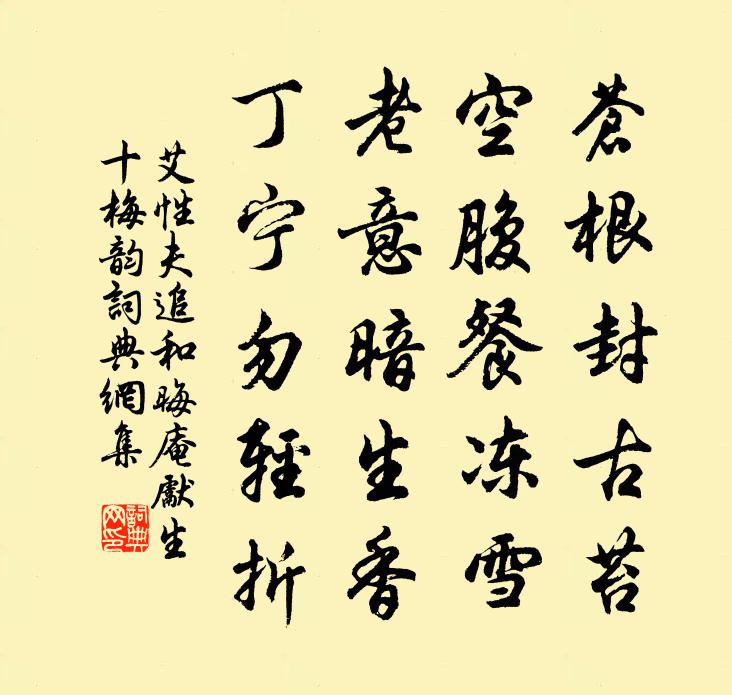 蒼根封古苔
空腹餐冻雪
老意暗生香
丁宁勿輕折
艾性夫追和晦庵獻生
十梅韵詞典網集
詞典
网印